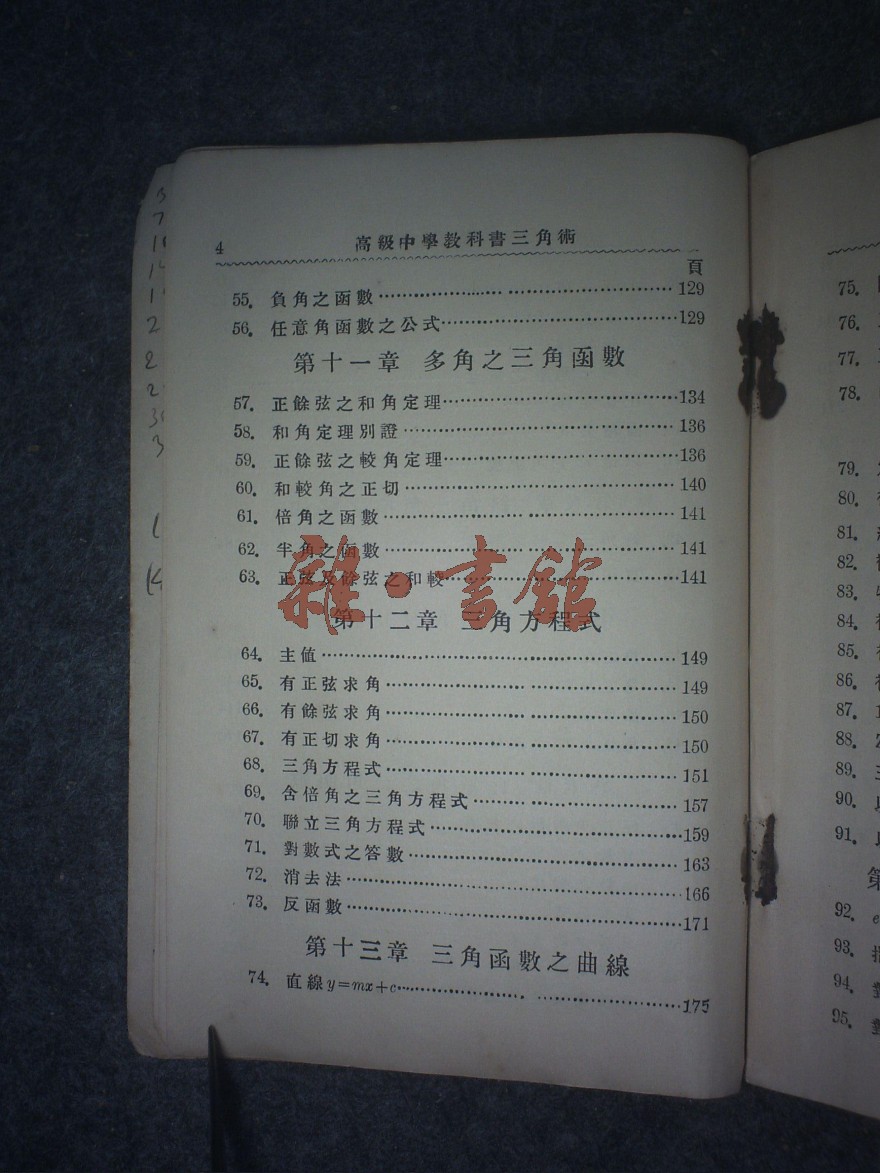 4 高級中學教科書三角術
頁
55. 負角之函數 129
56. 任意角函數之公式 129
第十一章 多角之三角函數
57. 正餘弦之和角定理 134
58. 和角定理別證 136
59. 正餘弦之較角定理 136
60. 和較角之正切 140
61. 倍角之函數 141
62. 半角之函數 141
63. 正弦及餘弦之和較 141
雜·書館
第十二章 三角方程式
64. 主值 149
65. 有正弦求角 149
66. 有餘弦求角 150
67. 有正切求角 150
68. 三角方程式 151
69. 含倍角之三角方程式 157
70. 聯立三角方程式 159
71. 對數式之答數 163
72. 消去法 166
73. 反函數 171
第十三章 三角函數之曲線
74. 直線y=mx+c 175
75.
76.
77.
78.
79.
80.
81.
82.
83.
84.
85.
86.
87.
88.
89.
90.
91.
92. e
93.
94.
95.